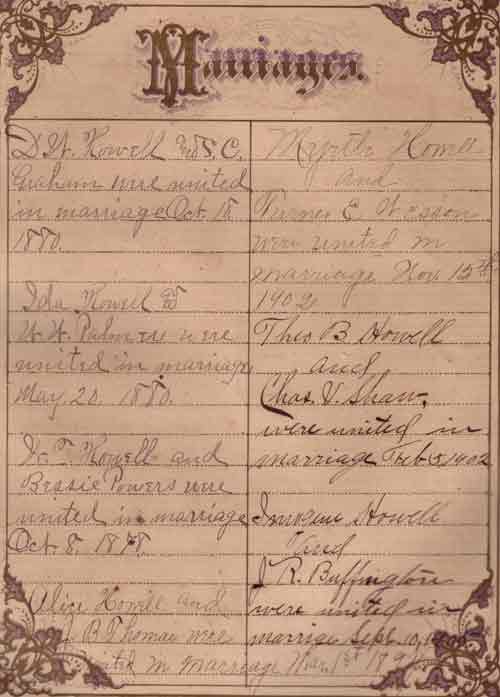 Marriages.
D. W. Howell and S. C.
Graham were united
in marriage Oct. 18
1880.
Ida Howell &
W. W. Palmer were
united in marriage
May 20. 1880.
W. T. Howell and
Bessie Powers were
united in marriage
Oct. 8. 1878.
Alice Howell and
B Thomas were
in marriage Mar. 1st
Myrtle Howell
and
Turner E Wesson
were united in
marriage Nov 15th
1902
Theo B. Howell
and
Chas. V. Shaw,
were united in
marriage Feb 5 1902
Imogene Howell
and
J. R. Buffington
were united in
marriage Sept. 10,